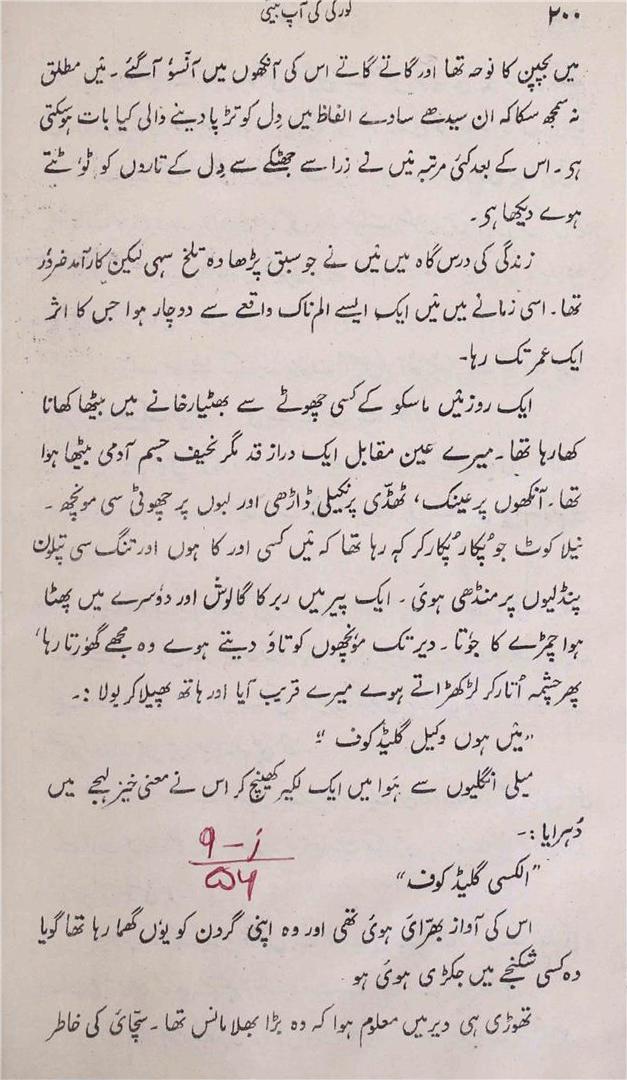 ۲۰۰
گورکی کی آپ بیتی
میں بچپن کا نوحہ تھا اور گاتے گاتے اس کی آنکھوں میں آنسوٗ آگئے ۔ میٔں مطلق
نہ سمجھ سکا کہ ان سیدھے سادے الفاظ میں دِل کو تڑپا دینے والی کیا بات ہوسکتی
ہی ۔ اس کے بعد کئی مرتبہ میٔں نے زرا سے جھٹکے سے دِل کے تاروں کو ٹوٗٹتے
ہوے دیکھا ہی ۔
زندگی کی درس گاہ میں میٔں نے جو سبق پڑھا وہ تلخ سہی لیکن کارآمد ضروٗر
تھا ۔ اسی زمانے میں میٔں ایک ایسے الم ناک واقعے سے دوچار ہوا جس کا اثر
ایک عمر تک رہا ۔
ایک روز میٔں ماسکو کے کسی چھوٹے سے بھٹیارخانے میں بیٹھا کھانا
کھا رہا تھا ۔ میرے عین مقابل ایک دراز قد مگر نحیف جسم آدمی بیٹھا ہوا
تھا ۔ آنکھوں پر عینک ، ٹھڈّی پر نکیلی ڈاڑھی اور لبوں پر چھوٹی سی مونچھ ۔
نیلا کوٹ جو پُکار پُکار کر کہ رہا تھا کہ میٔں کسی اور کا ہوں اور تنگ سی پتلون
پنڈلیوں پر منڈھی ہوئ ۔ ایک پیر میں ربر کا گالوش اور دوٗسرے میں پھٹا
ہوا چمڑے کا جوٗتا ۔ دیر تک موٗنچھوں کو تاؤ دیتے ہوے وہ مجھے گھوٗرتا رہا ،
پھر چشمہ اُتار کر لڑکھڑاتے ہوے میرے قریب آیا اور ہاتھ پھیلا کر بولا :۔
”میٔں ہوں وکیل گلیڈکوف “
میلی انگلیوں سے ہَوا میں ایک لکیر کھینچ کر اس نے معنی خیز لہجے میں
دُہرایا :۔
۹ – ز
۵۶
”الکسی گلیڈکوف“
اس کی آواز بھرّائ ہوئ تھی اور وہ اپنی گردن کو یوٗں گھما رہا تھا گویا
وہ کسی شکنجے میں جکڑی ہوئ ہو
تھوڑی ہی دیر میں معلوم ہوا کہ وہ بڑا بھلا مانس تھا ۔ سچّائ کی خاطر